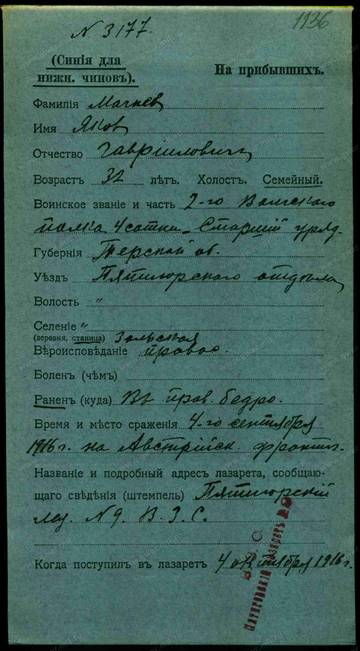 1936
N 3177.
(Синія для нижн. чиновъ).
На прибывшихъ.
Фамилія
Имя Яков
Отчество Гавріилович
Возрастъ 32 лѣтъ. Холост. Семейный.
Воинское званіе и часть 2-го Волгскаго
полка 4 сотни Старшій уряд.
Губернія Терской об.
Уѣздъ Пятигорскаго отдѣла
Волость "
Селеніе "
(деревня, станица) Зольская
Вѣроисповѣданіе правос.
Боленъ (чѣмъ)
Раненъ (куда) Въ прав. бедро.
Время и мѣсто сраженія 4-го сентября
1916 г. на Австрійск. фронтѣ.
Названіе и подробный адресъ лазарета, сообщаю-
щаго свѣдѣнія (штемпель) Пятигорскій
лаз. N 9. В. З. С.
Когда поступилъ въ лазаретъ 4 октября 1916 г.